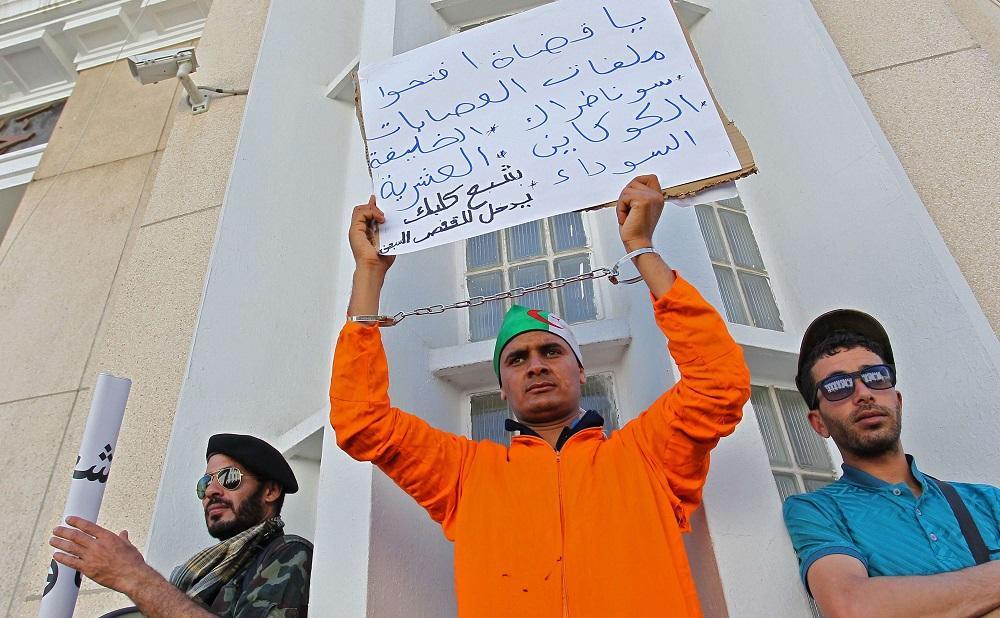 يا قضاة افتحوا
ملفات العصابات
سوناطراك *الخليفة
*الكوكايين *العشرية
السوداء
شبع كلبك
يدخل للقفص
شع